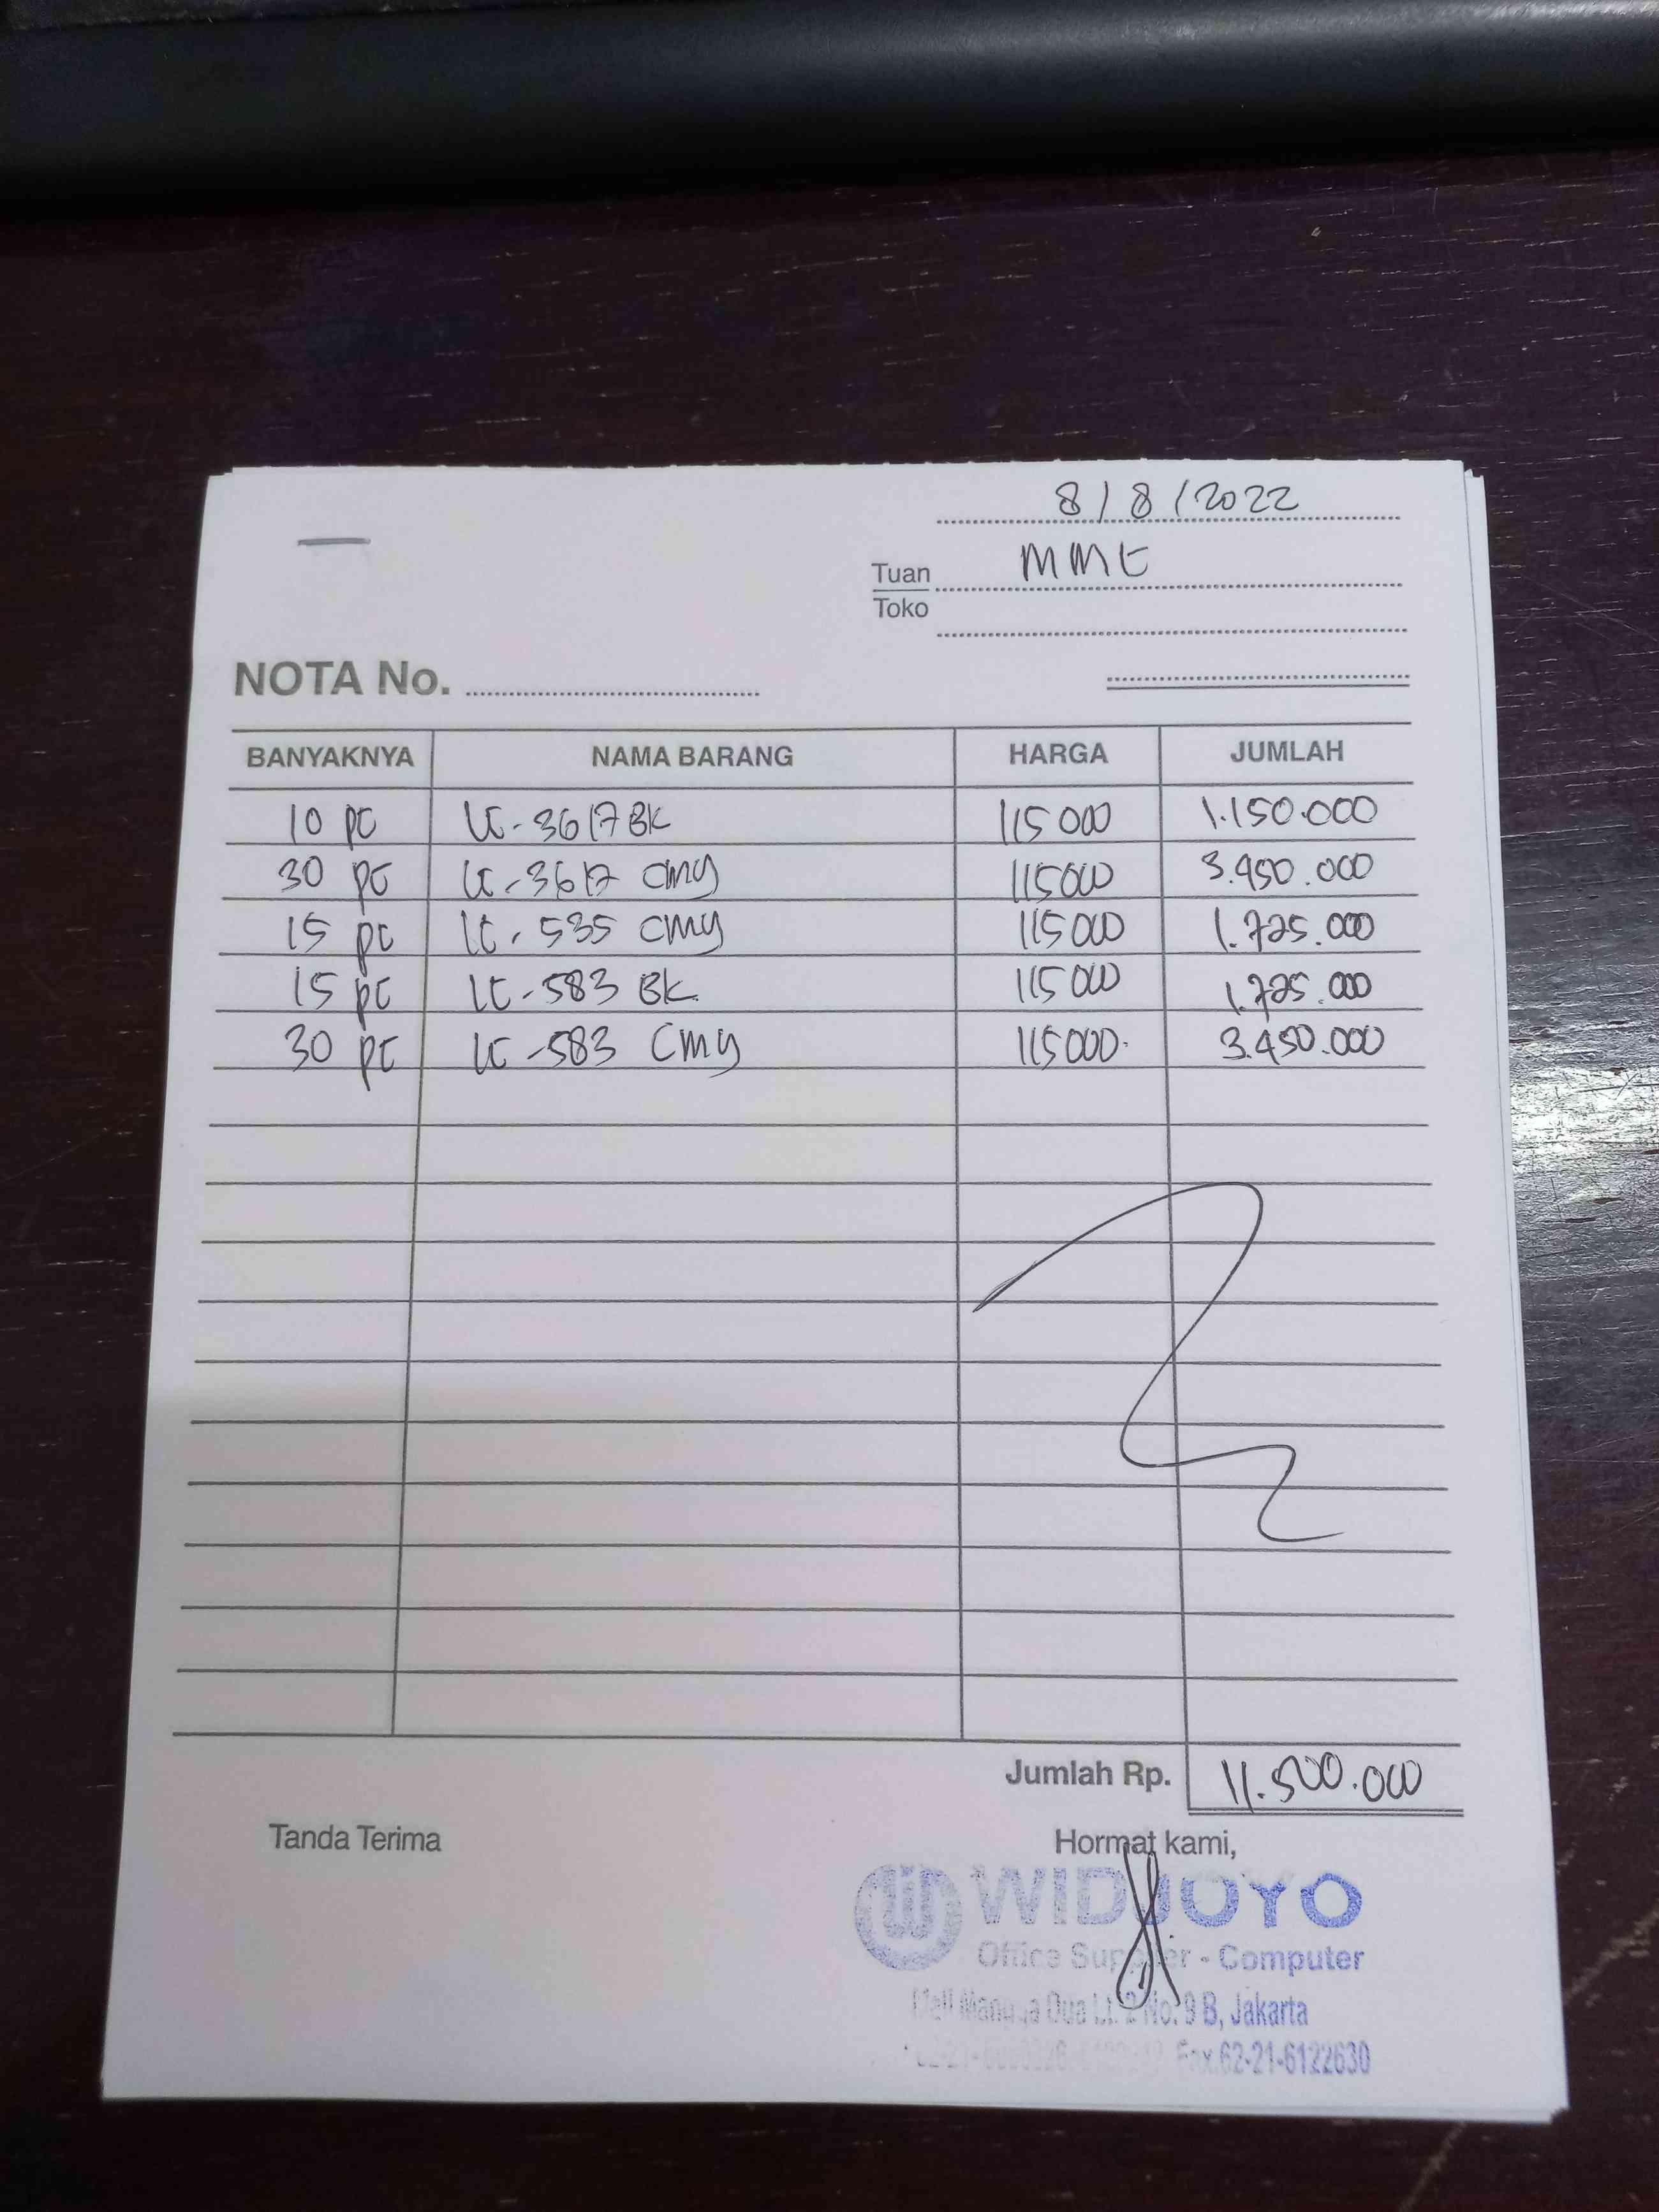 8/8/2022
Tuan MME
Toko
NOTA No.
BANYAKNYA NAMA BARANG HARGA JUMLAH
10 pc LC-3617 BK 115000 1.150.000
30 pc LC-3617 CMY 115000 3.450.000
15 pc LC-535 CMY 115000 1.725.000
15 pc LC-583 BK 115000 1.725.000
30 pc LC-583 CMY 115000 3.450.000
Jumlah Rp. 11.500.000
Tanda Terima Hormat kami,
WIDJOYO
Office Supplier - Computer
Mall Mangga Dua Lt. 2 No. 9 B, Jakarta
Fax.62-21-6122630